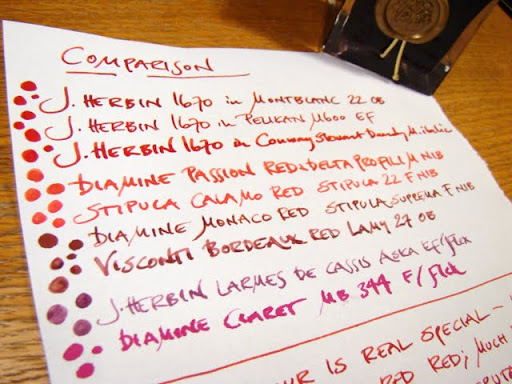 COMPARISON
J. HERBIN 1670 in MONTBLANC 22 OB
J. HERBIN 1670 in PELIKAN M600 EF
J. HERBIN 1670 in Conway Stewart Dandy M. italic
DIAMINE PASSION RED DELTA PROFILI M NIB
STIPULA CALAMO RED STIPULA 22 F NIB
DIAMINE MONACO RED STIPULA SUPREMA F NIB
VISCONTI BORDEAUX RED LAMY 27 OB
J. HERBIN LARMES DE CASSIS AURORA EF/flex
DIAMINE CLARET MB 344 F/flex
IS REAL SPECIAL —
RED RED; MUCH